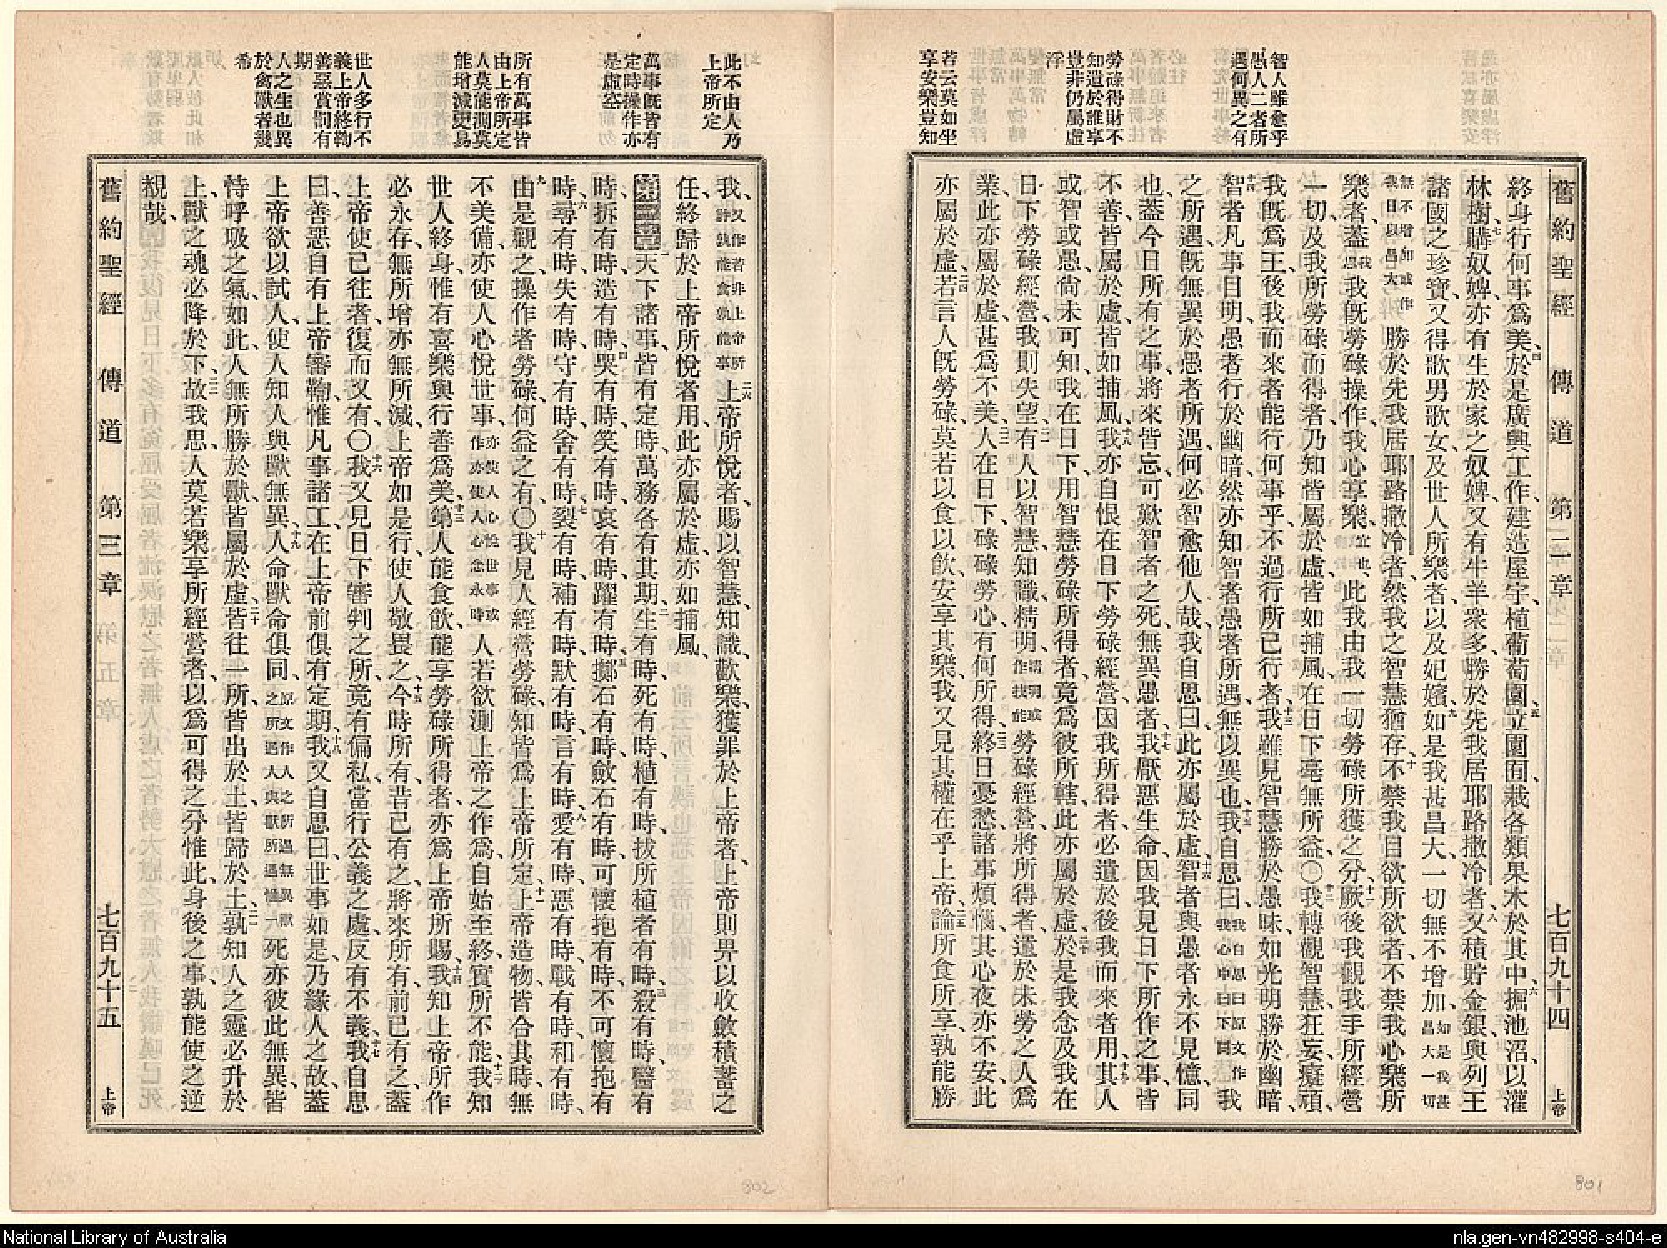 智人雖愈乎
愚人二者所
遇何異之有
勞碌得財不
知遺於誰享
豈非仍屬虛
浮
若云莫如坐
享安樂豈知
舊約聖經 傳道 第二章 七百九十四 上帝
終身行何事爲美、四於是廣興工作、建造屋宇、植葡萄園、五立園囿、栽各類果木於其中、六掘池沼、以灌
林樹、七購奴婢、亦有生於家之奴婢、又有牛羊衆多、勝於先我居耶路撒冷者、八又積貯金銀、與列王
諸國之珍寶、又得歌男歌女、及世人所樂者、以及妃嬪、九如是我甚昌大、一切無不增加、如是我甚昌大一切
無不增加或作我日以昌大勝於先我居耶路撒冷者、然我之智慧猶存、十不禁我目欲所欲者、不禁我心樂所
樂者、蓋我既勞碌操作、我心享樂宜也、此我由我一切勞碌所獲之分、十一厥後我觀我手所經營
一切、及我所勞碌而得者、乃知皆屬於虛、皆如捕風、在日下毫無所益、〇十二我轉觀智慧、狂妄、癡頑、
我既爲王、後我而來者、能行何事乎、不過行所已行者、十三我雖見智慧勝於愚昧、如光明勝於幽暗、
十四智者凡事目明、愚者行於幽暗、然亦知智者愚者所遇、無以異也、十五我自思曰我自思曰原文作我心中曰下同我
之所遇、既無異於愚者所遇、何必智愈他人哉、我自思曰、此亦屬於虛、十六智者與愚者、永不見憶、同
也、蓋今日所有之事、將來皆忘、可歎智者之死、無異愚者、十七我厭惡生命、因我見日下所作之事、皆
不善、皆屬於虛、皆如捕風、十八我亦自恨在日下勞碌經營、因我所得者、必遺於後我而來者用、十九其人
或智或愚、尚未可知、我在日下、用智慧勞碌所得者、竟爲彼所轄、此亦屬於虛、二十於是我念及我在
日下勞碌經營、我則失望、二一有人以智慧知識精明精明或作技能勞碌經營、將所得者、遺於未勞之人爲
業、此亦屬於虛、甚爲不美、二二人在日下碌碌勞心、有何所得、二三終日憂愁、諸事煩惱、其心夜亦不安、此
亦屬於虛、二四若言人既勞碌、莫若以食以飲、安享其樂、我又見其權在乎上帝、二五論所食所享、孰能勝
此不由人乃
上帝所定
萬事既皆有
定時操作亦
是虛空
所有萬事皆
由上帝所定
人莫能測莫
能增減更易
世人多行不
義上帝終鞫
善惡賞罰有
期
人之生也異
於禽獸者幾
希
我、又作若非上帝所許孰能食孰能事二六上帝所悅者、賜以智慧知識歡樂、獲罪於上帝者、上帝則畀以收斂積蓄之
任、終歸於上帝所悅者用、此亦屬於虛、亦如捕風、
第三章 一天下諸事、皆有定時、萬務各有其期、二生有時、死有時、植有時、拔所植者有時、三殺有時、醫有
時、拆有時、造有時、四哭有時、笑有時、哀有時、躍有時、五擲石有時、斂石有時、可懷抱有時、不可懷抱有
時、六尋有時、失有時、守有時、舍有時、七裂有時、補有時、默有時、言有時、八愛有時、惡有時、戰有時、和有時、
九由是觀之、操作者勞碌、何益之有、〇十我見人經營勞碌、知皆爲上帝所定、十一上帝造物、皆合其時、無
不美備、亦使人心悅世事、亦使人心悅世事或作亦使人心念永時人若欲測上帝之作爲、自始至終、實所不能、十二我知
世人終身、惟有喜樂與行善爲美、十三第人能食飲、能享勞碌所得者、亦爲上帝所賜、十四我知上帝所作
必永存、無所增、亦無所減、上帝如是行、使人敬畏之、十五今時所有、昔已有之、將來所有、前已有之、蓋
上帝使已往者復而又有、〇十六我又見日下審判之所、竟有偏私、當行公義之處、反有不義、十七我自思
曰、善惡自有上帝審鞫、惟凡事諸工、在上帝前俱有定期、十八我又自思曰、世事如是、乃緣人之故、蓋
上帝欲以試人、使人知人與獸無異、十九人命獸命俱同、原文作人之所遇無異獸之所遇人與獸所遇惟一死亦彼此無異、皆
恃呼吸之氣、如此人無所勝於獸、皆屬於虛、二十皆往一所、皆出於土、皆歸於土、二一孰知人之靈必升於
上、獸之魂必降於下、二二故我思人莫若樂享所經營者、以爲可得之分、惟此、身後之事、孰能使之逆
覩哉、
舊約聖經 傳道 第三章 七百九十五 上帝
802
801
National Library of Australia
nla.gen-vn482998-s404-e